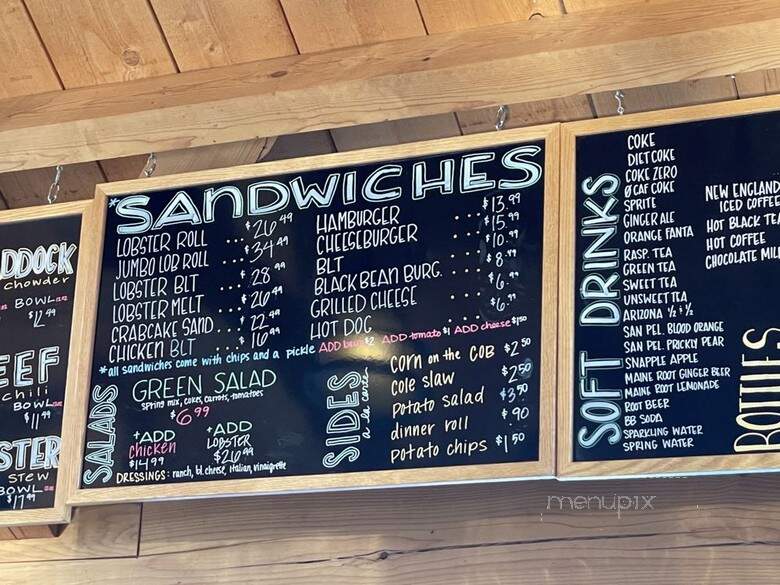 DDOCK
Chowder
BOWL
$12.49
EEF
chili
BOWL
$11.99
STER
STEW
BOWL
$17
*SANDWICHES
LOBSTER ROLL ... $26.49
JUMBO LOB ROLL ... $34.49
LOBSTER BLT ... $28.99
LOBSTER MELT ... $26.49
CRABCAKE SAND ... $22.99
CHICKEN BLT . $16.99
HAMBURGER ... $13.99
CHEEGEBURGER ... $15.99
BLT ... $10.99
BLACK BEAN BURG. ... $8.49
GRILLED CHEESE ... $6.99
HOT DOG ... $6.99
*all sandwiches come with chips and a pickle ADD $2 ADD tomato $1 ADD cheese $1.50
SALADS
GREEN SALAD
spring mix, cukes, carrots, tomatoes
$6.99
+ADD chicken $14.99
+ADD LOBSTER $26.99
DRESSINGS: ranch, bl. cheese, Italian, vinaigrette
SIDES
a la carte
corn on the COB $2.50
cole slaw $2.50
potato salad $3.50
dinner roll $.90
potato chips $1.50
SOFT DRINKS
COKE
DIET COKE
COKE ZERO
Ø CAF COKE
SPRITE
GINGER ALE
ORANGE FANTA
RASP. TEA
GREEN TEA
SWEET TEA
UNSWEET TEA
ARIZONA ½ & ½
SAN PEL. BLOOD ORANGE
SAN PEL. PRICKLY PEAR
SNAPPLE APPLE
MAINE ROOT GINGER BEER
MAINE ROOT LEMONADE
ROOT BEER
BB SODA
SPARKLING WATER
SPRING WATER
NEW ENGLAND
ICED COFFEE
HOT BLACK TEA
HOT COFFEE
CHOCOLATE MIL
BOTTLES
menupix